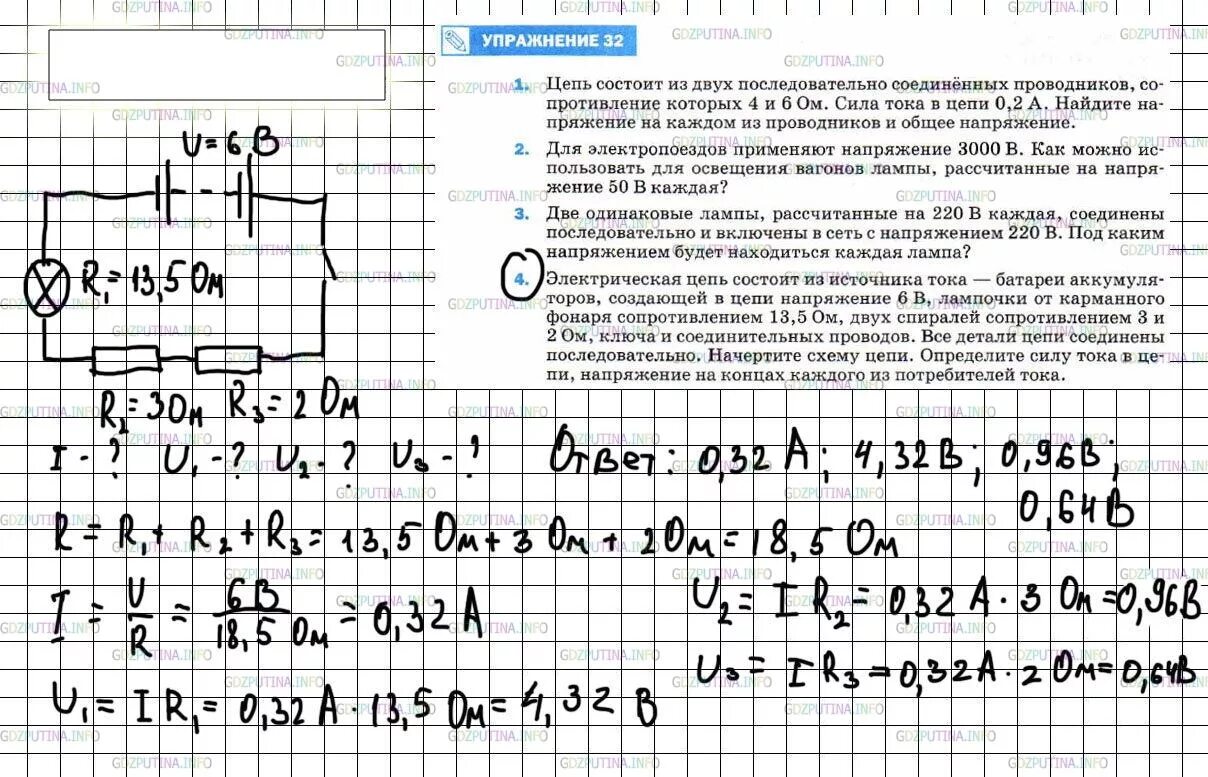 УПРАЖНЕНИЕ 32
1. Цепь состоит из двух последовательно соединённых проводников, со-
противление которых 4 и 6 Ом. Сила тока в цепи 0,2 А. Найдите на-
пряжение на каждом из проводников и общее напряжение.
2. Для электропоездов применяют напряжение 3000 В. Как можно ис-
пользовать для освещения вагонов лампы, рассчитанные на напря-
жение 50 В каждая?
3. Две одинаковые лампы, рассчитанные на 220 В каждая, соединены
последовательно и включены в сеть с напряжением 220 В. Под каким
напряжением будет находиться каждая лампа?
4. Электрическая цепь состоит из источника тока — батареи аккумуля-
торов, создающей в цепи напряжение 6 В, лампочки от карманного
фонаря сопротивлением 13,5 Ом, двух спиралей сопротивлением 3 и
2 Ом, ключа и соединительных проводов. Все детали цепи соединены
последовательно. Начертите схему цепи. Определите силу тока в це-
пи, напряжение на концах каждого из потребителей тока.
U = 6 В
R₁ = 13,5 Ом
R₂ = 3 Ом R₃ = 2 Ом
I - ? U₁ - ? U₂ - ? U₃ - ?
Ответ: 0,32 А; 4,32 В; 0,96 В;
0,64 В
R = R₁ + R₂ + R₃ = 13,5 Ом + 3 Ом + 2 Ом = 18,5 Ом
I = U/R = 6 В/18,5 Ом = 0,32 А
U₁ = I R₁ = 0,32 А · 13,5 Ом = 4,32 В
U₂ = I R₂ = 0,32 А · 3 Ом = 0,96 В
U₃ = I R₃ = 0,32 А · 2 Ом = 0,64 В
GDZPUTINA.INFO